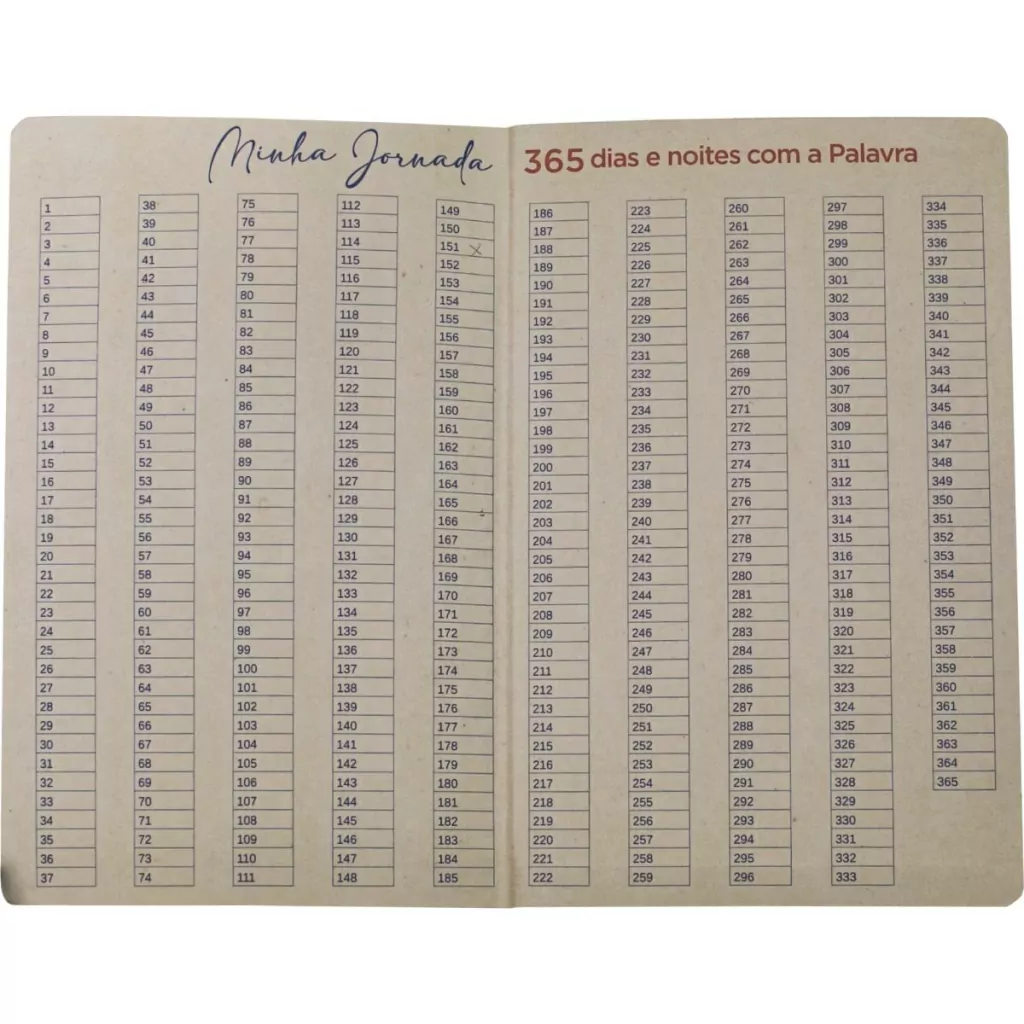 Minha Jornada
365 dias e noites com a Palavra
1
2
3
4
5
6
7
8
9
10
11
12
13
14
15
16
17
18
19
20
21
22
23
24
25
26
27
28
29
30
31
32
33
34
35
36
37
38
39
40
41
42
43
44
45
46
47
48
49
50
51
52
53
54
55
56
57
58
59
60
61
62
63
64
65
66
67
68
69
70
71
72
73
74
75
76
77
78
79
80
81
82
83
84
85
86
87
88
89
90
91
92
93
94
95
96
97
98
99
100
101
102
103
104
105
106
107
108
109
110
111
112
113
114
115
116
117
118
119
120
121
122
123
124
125
126
127
128
129
130
131
132
133
134
135
136
137
138
139
140
141
142
143
144
145
146
147
148
149
150
151 x
152
153
154
155
156
157
158
159
160
161
162
163
164
165
166
167
168
169
170
171
172
173
174
175
176
177
178
179
180
181
182
183
184
185
186
187
188
189
190
191
192
193
194
195
196
197
198
199
200
201
202
203
204
205
206
207
208
209
210
211
212
213
214
215
216
217
218
219
220
221
222
223
224
225
226
227
228
229
230
231
232
233
234
235
236
237
238
239
240
241
242
243
244
245
246
247
248
249
250
251
252
253
254
255
256
257
258
259
260
261
262
263
264
265
266
267
268
269
270
271
272
273
274
275
276
277
278
279
280
281
282
283
284
285
286
287
288
289
290
291
292
293
294
295
296
297
298
299
300
301
302
303
304
305
306
307
308
309
310
311
312
313
314
315
316
317
318
319
320
321
322
323
324
325
326
327
328
329
330
331
332
333
334
335
336
337
338
339
340
341
342
343
344
345
346
347
348
349
350
351
352
353
354
355
356
357
358
359
360
361
362
363
364
365